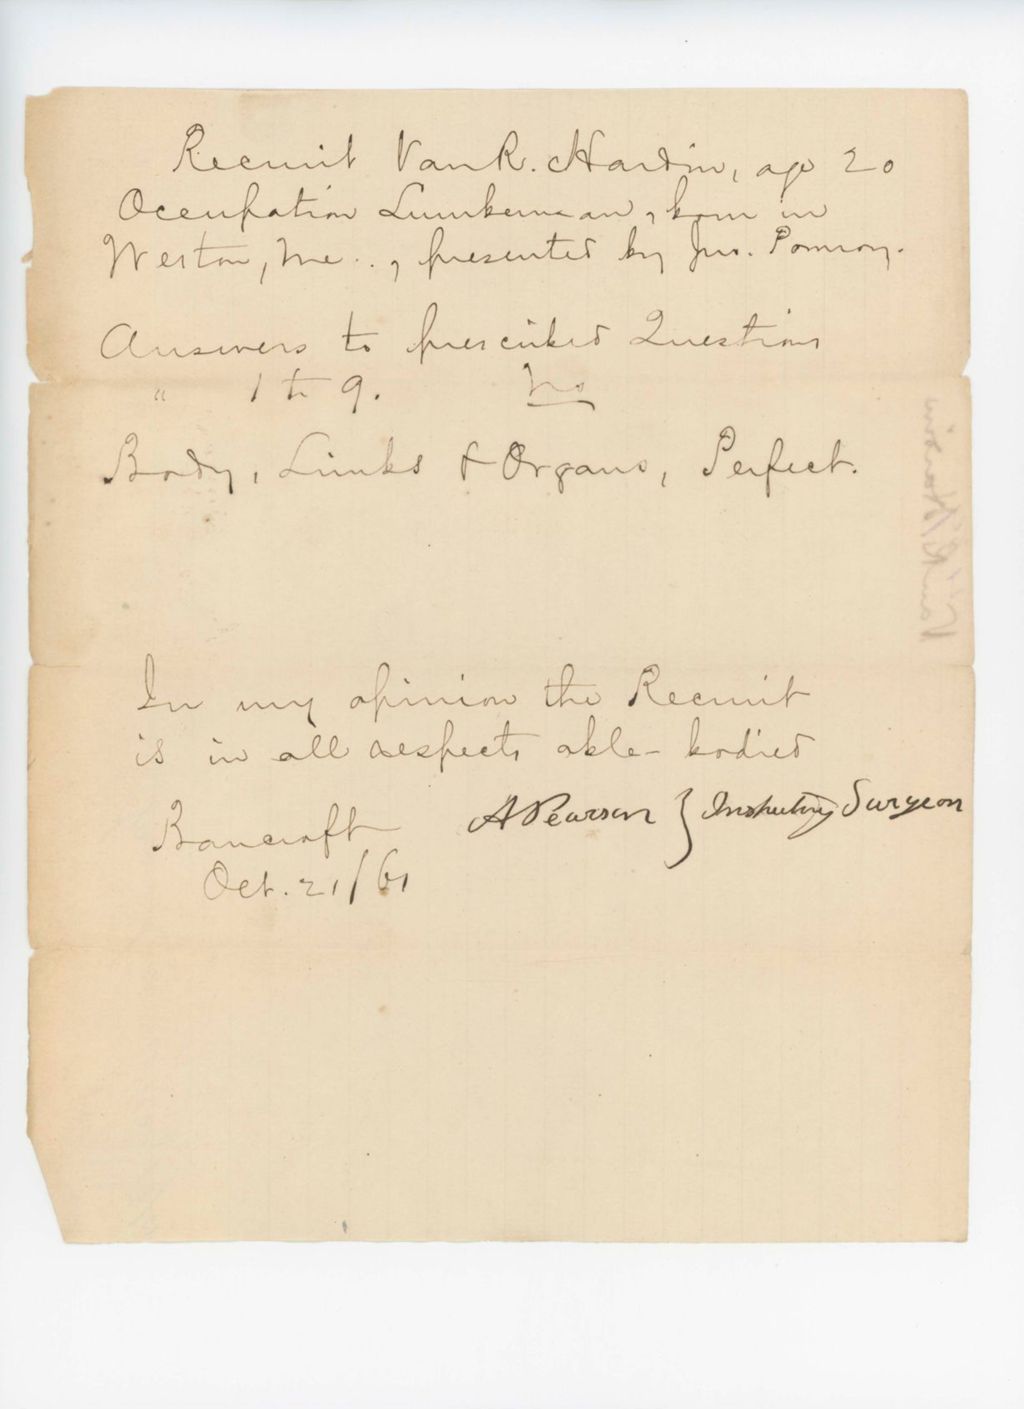 Recruit Van R. Hardin, age 20
Occupation Lumberman, born in
Weston, Me., presented by Jno. Pomroy.
Answers to prescribed Questions
" 1 to 9. No
Body, Limbs & Organs, Perfect.
In my opinion the Recruit
is in all respects able-bodied
A Pearson } Inspecting Surgeon
Bancroft
Oct. 21/61
Van R. Hardin